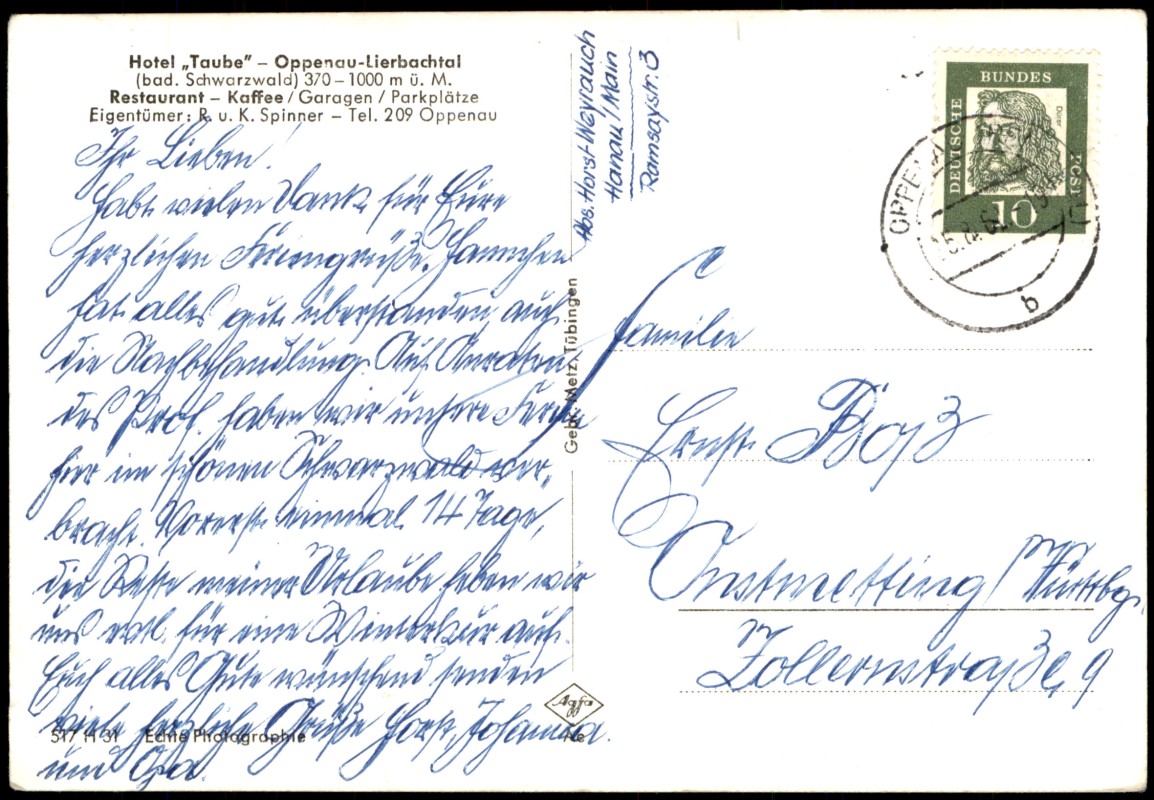 Hotel „Taube" – Oppenau-Lierbachtal
(bad. Schwarzwald) 370 – 1000 m ü. M.
Restaurant – Kaffee / Garagen / Parkplätze
Eigentümer: R. u. K. Spinner – Tel. 209 Oppenau
Ihr Lieben!
Habt vielen Dank für Eure
herzlichen Feriengrüße. Hannchen
hat alles gut überstanden auch
die Nachbehandlung. Auf Anraten
des Prof. haben wir unsere Ferien
hier im schönen Schwarzwald ver-
bracht. Vorerst einmal 14 Tage,
die Reste meiner Urlaube heben wir
uns evtl. für eine Winterkur auf.
Euch alles Gute wünschend senden
viele herzliche Grüße Horst, Johanna
und Opa.
517 H 31 Echte Photographie
Abs. Horst Weyrauch
Hanau/Main
Ramsaystr. 3
Gebr. Metz, Tübingen
Agfa
DEUTSCHE BUNDESPOST
Dürer
10
OPPENAU
b
Familie
Ernst Boß
Onstmetting/Württbg.
Zollernstraße 9